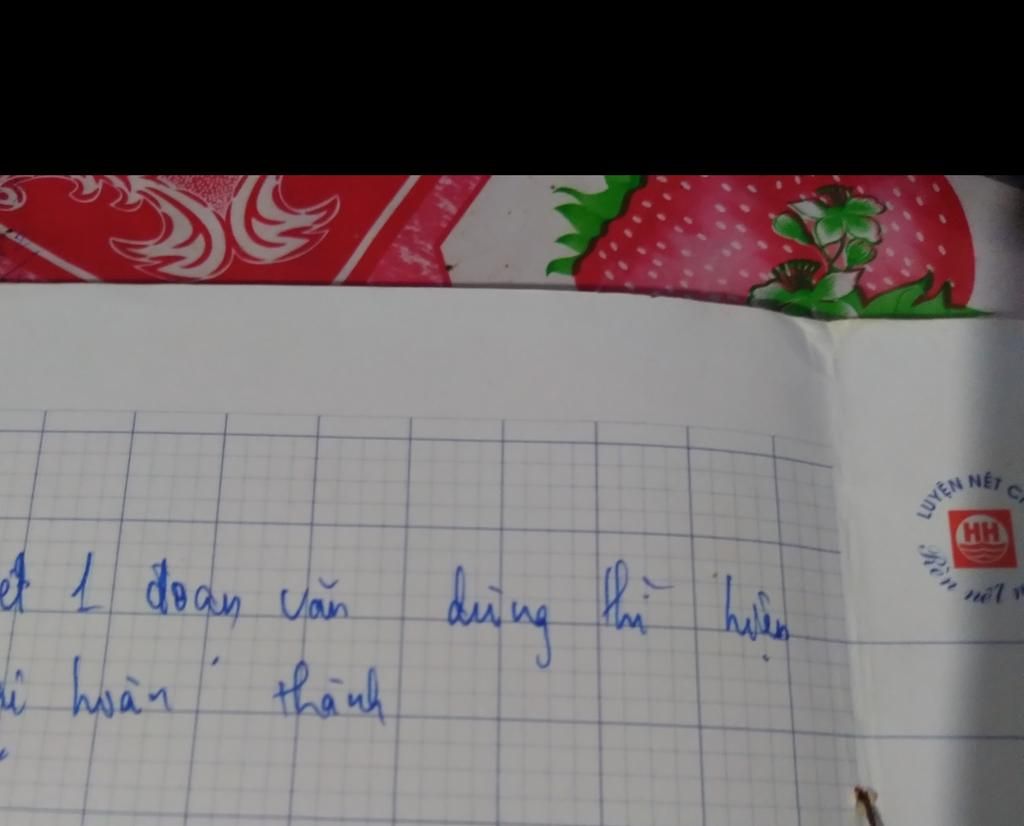 1 đoạn văn dùng thì hiện
hoàn thành
LUYỆN NÉT
HH
Rèn nết